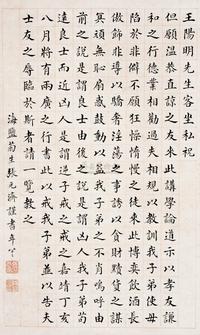 王陽明先生客坐私祝
但願溫恭直諒之友來此講學論道示以孝友謙
和之行德業相勸過失相規以教訓我子弟使毋
陷於非僻不願狂懆惰慢之徒來此博弈飲酒長
傲飾非導以驕奢淫蕩之事誘以貪財黷貨之謀
冥頑無恥扇惑鼓動以益我子弟之不肖嗚呼由
前之說是謂良士由後之說是謂凶人我子弟苟
遠良士而近凶人是謂逆子戒之戒之嘉靖丁亥
八月將有兩廣之行書此以戒我子弟並以告夫
士友之辱臨於斯者請一覽教之
海鹽菊生張元濟謹書年